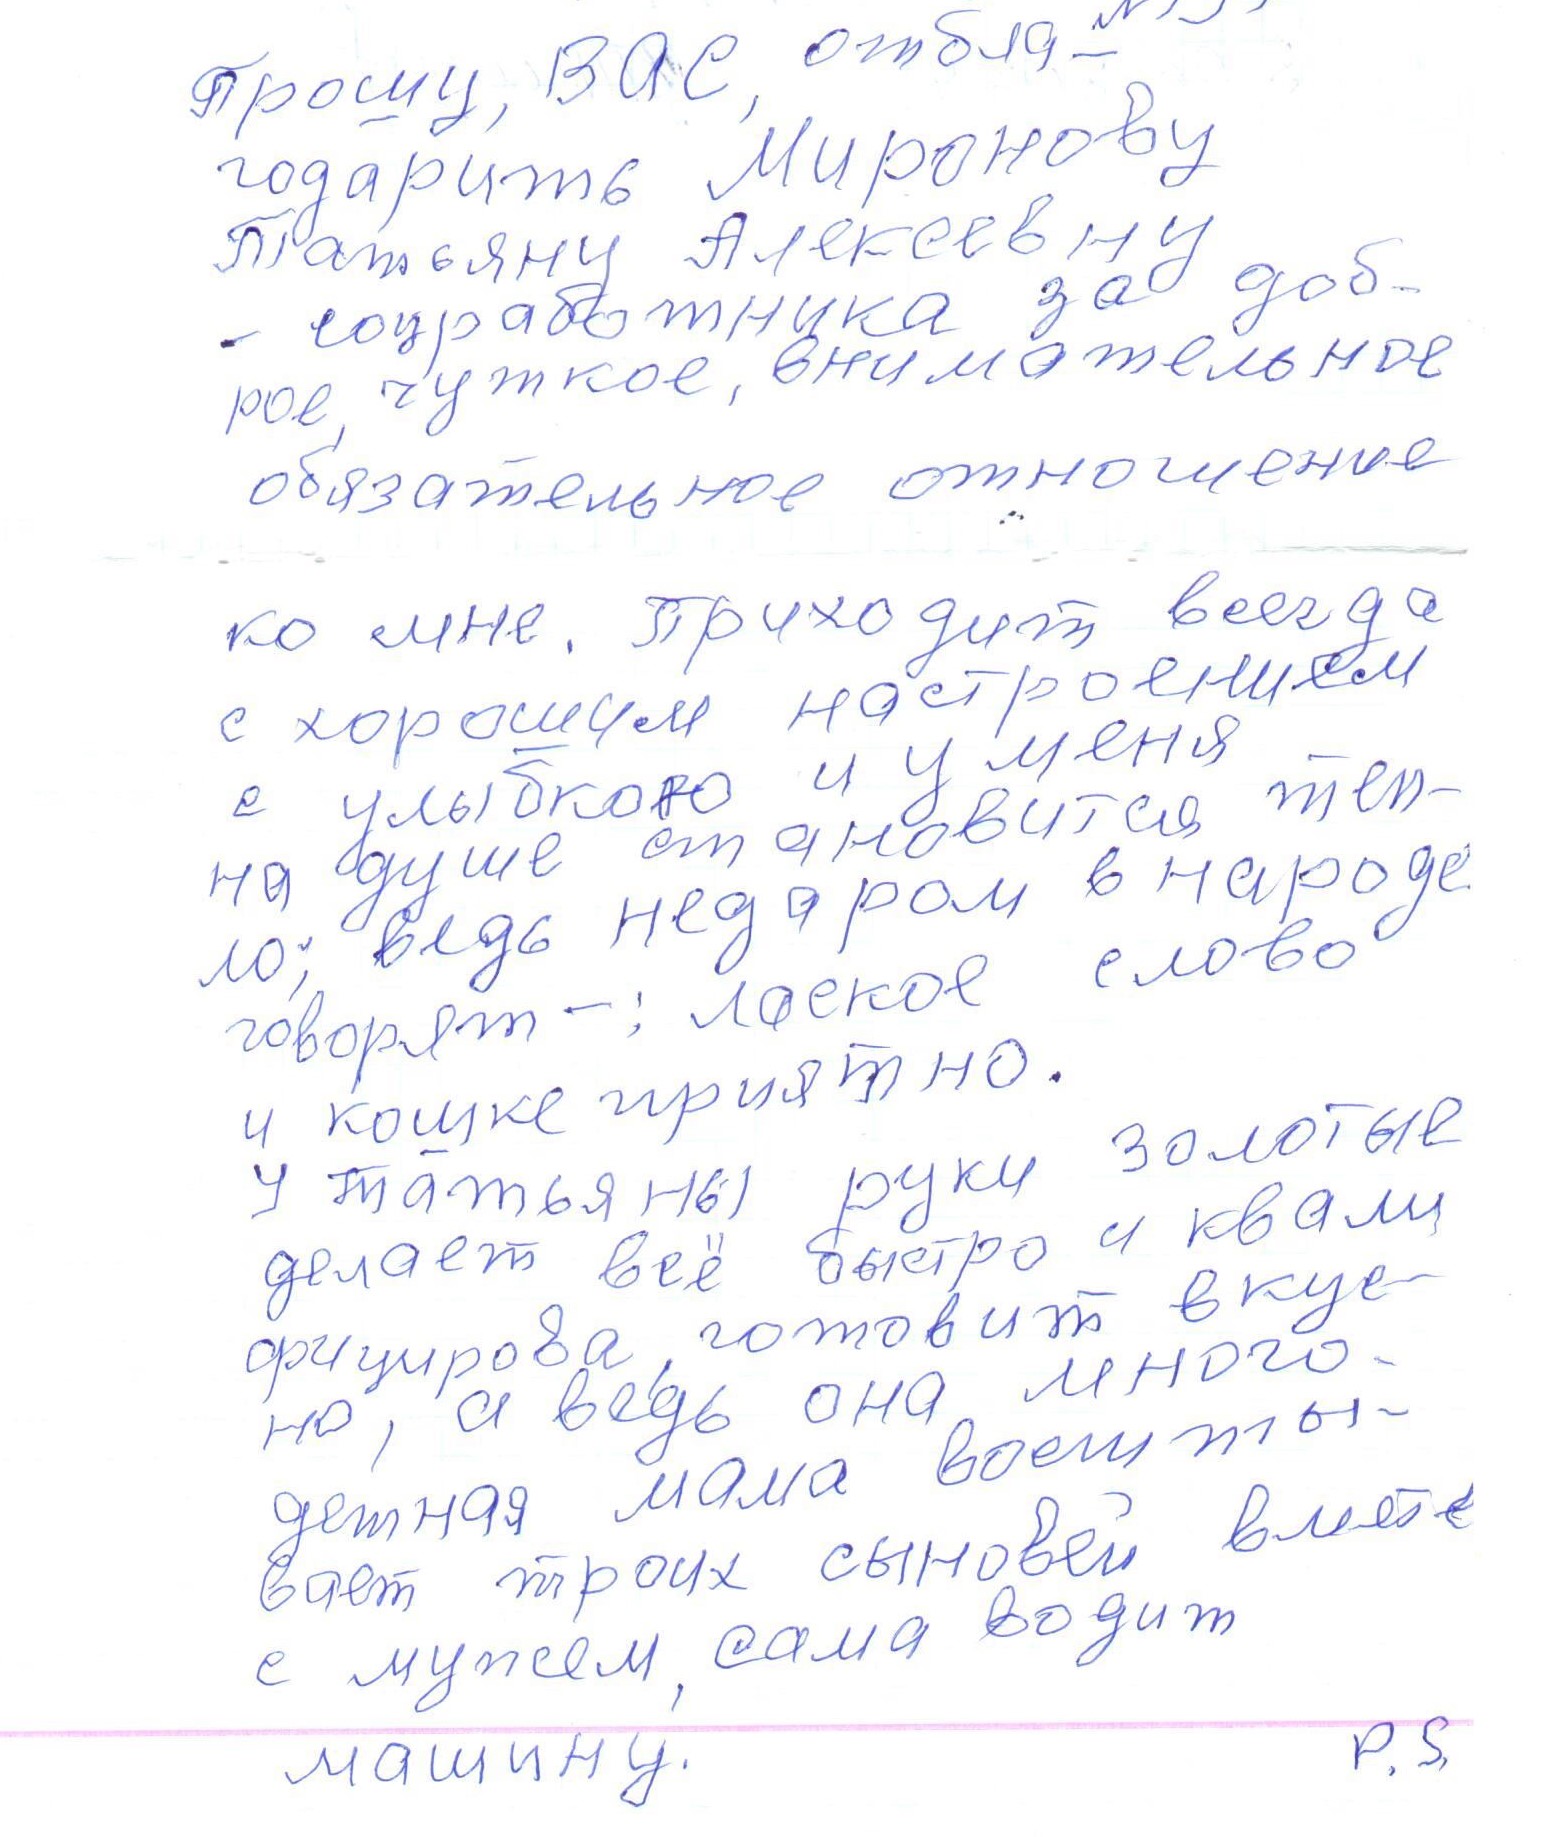 Прошу, ВАС, отбла-
годарить Миронову
Татьяну Алексеевну
- соцработника за доб-
рое, чуткое, внимательное
обязательное отношение
ко мне. Приходит всегда
с хорошим настроением
с улыбкою и у меня
на душе становится теп-
ло; ведь недаром в народе
говорят -: лаское слово
и кошке приятно.
У Татьяны руки золотые
делает всё быстро и квали
фицирова, готовит вкус-
но, а ведь она много-
детная мама воспиты-
вает троих сыновей вместе
с мужем, сама водит
машину. P.S.